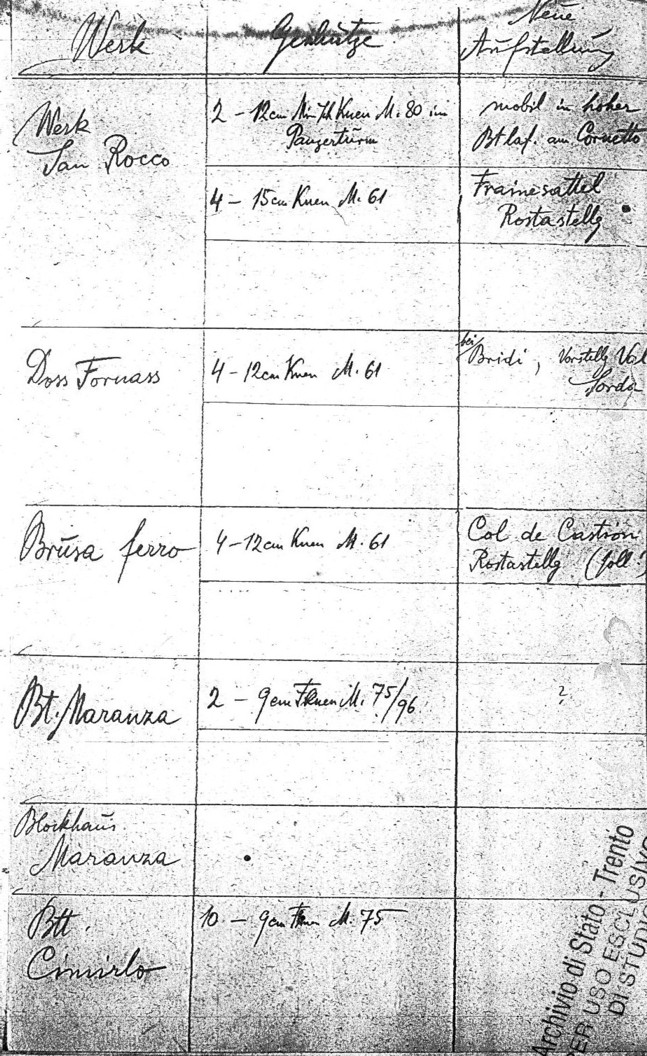 Werk
Geschütze
Neue
Aufstellung
Werk
San Rocco
2 - 12cm Min Knen M. 80 im
Panzerturm
mobil in hoher
Bt laf. am Cornetto
4 - 15cm Knen M. 61
Frainesattel
Rostastellg
Doss Fornass
4 - 12cm Knen M. 61
bei
Bridi, Vorstellg Val
Sorda
Brusa ferro
4 - 12cm Knen M. 61
Col de Castion
Rostastellg (soll!)
Bt. Maranza
2 - 9cm Fknen M. 75/96
?
Blockhaus
Maranza
Btt.
Cimirlo
10 - 9cm Fknen M. 75
Archivio di Stato - Trento
PER USO ESCLUSIVO
DI STUDIO